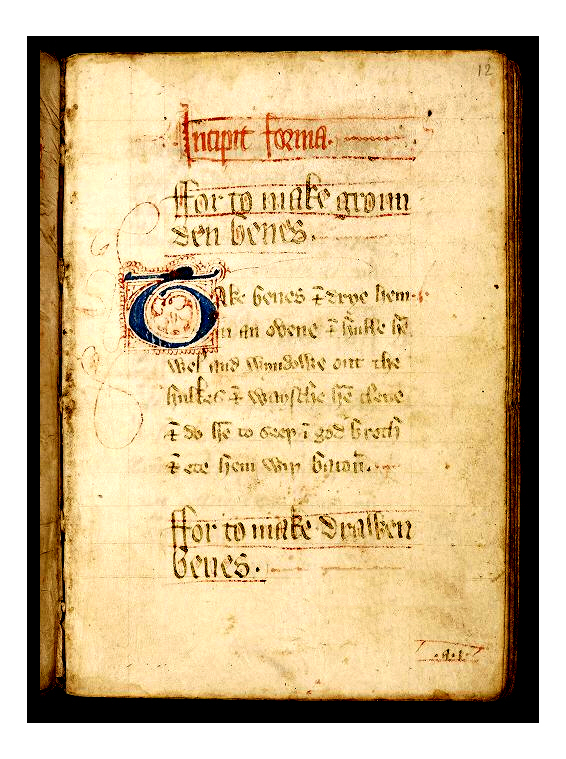 12
Incipit forma.
ffor to make groun
den benes.
Take benes ⁊ drye hem
in an ovene ⁊ hulle hē
wel and wyndowe out the
hulkes ⁊ waysche hē clene
⁊ do hē to seeþ ī god broth
⁊ ete hem wiþ bacon.
ffor to make drawen
benes.
.a.i.